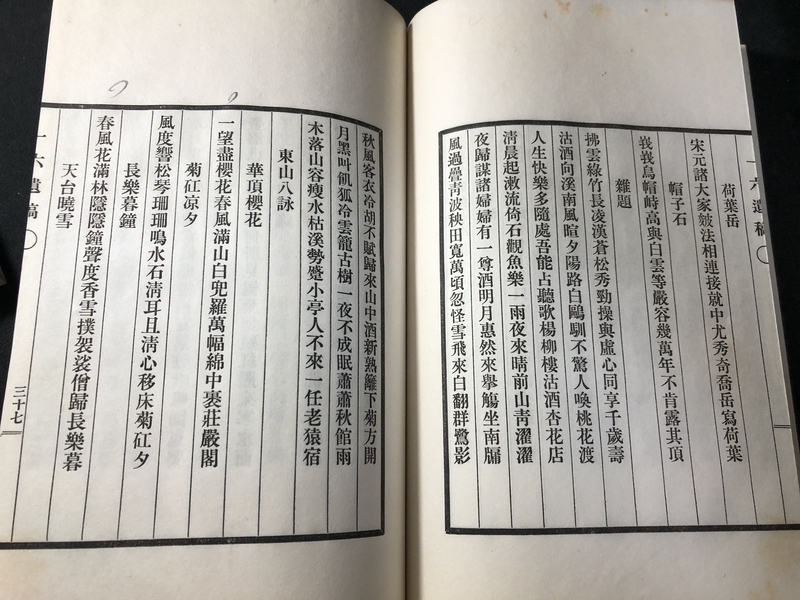 荷葉岳
宋元諸大家皴法相連接就中尤秀奇喬岳寫荷葉
帽子石
峩峩烏帽峙高與白雲等嚴容幾萬年不肯露其頂
雜題
拂雲綠竹長凌漢蒼松秀勁操與虛心同享千歲壽
沽酒向溪南風暄夕陽路白鷗馴不驚人喚桃花渡
人生快樂多隨處吾能占聽歌楊柳樓沽酒杏花店
淸晨起漱流倚石觀魚樂一雨夜來晴前山靑濯濯
夜歸謀諸婦婦有一尊酒明月惠然來擧觴坐南牖
風過疊靑波秧田寬萬頃忽怪雪飛來白翻群鷺影
秋風客衣冷胡不賦歸來山中酒新熟籬下菊方開
月黑叫飢狐冷雲籠古樹一夜不成眠蕭蕭秋館雨
木落山容瘦水枯溪勢蹙小亭人不來一任老猿宿
東山八詠
華頂櫻花
一望盡櫻花春風滿山白兜羅萬幅綿中裹莊嚴閣
菊矼凉夕
風度響松琴珊珊鳴水石淸耳且淸心移床菊矼夕
長樂暮鐘
春風花滿林隱隱鐘聲度香雪撲袈裟僧歸長樂暮
天台曉雪
六遺稿
三十七